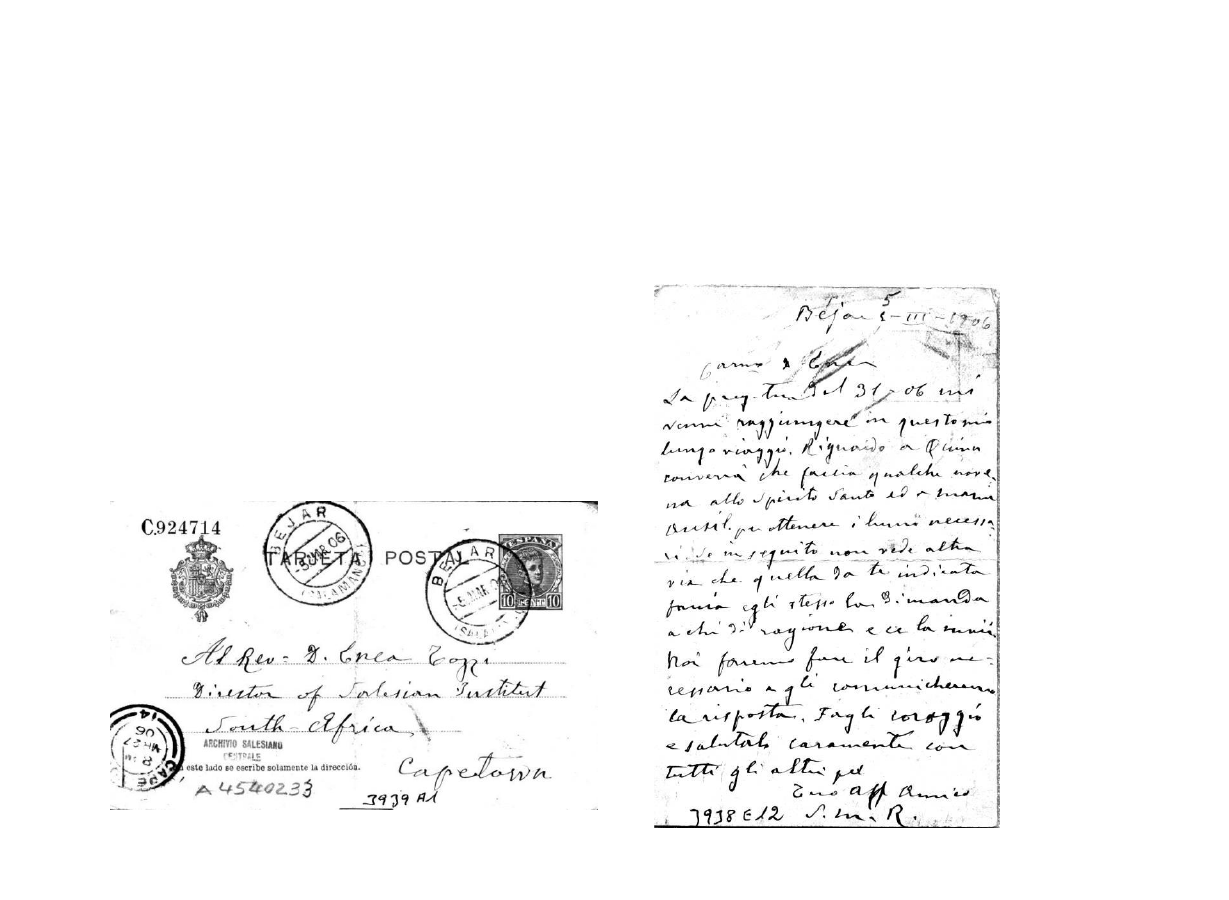 C.924714
BEJAR
5 MAR 06
(SALAMANCA)
TARJETA POSTAL
BEJAR
-5 MAR 06
(SALA
ESPAÑA
10 CENT 10
Al Rev- D. Enea Tozzi
Director of Salesian Institut
South-Africa
Capetown
ARCHIVIO SALESIANO
CENTRALE
n este lado se escribe solamente la dirección.
A4540233
3939 A1
CAPE
MR 27
06
14
Béjar 5-III-1906
Carmo D Enea
La preg. tua del 31- 06 mi
venne raggiungere in questo mio
lungo viaggio. Riguardo a
converrà che faccia qualche nove-
na allo Spirito Santo ed a Maria
Ausil. per ottenere i lumi necessa-
ri. Se in seguito non vede altra
via che quella da te indicata
faccia egli stesso la dimanda
a chi di ragione e ce la
Noi faremo fare il giro ne-
cessario e gli comunicheremo
la risposta. Fagli coraggio
e salutalo caramente con
tutti gli altri pel
Tuo aff Amico
3938 E12 S. m. R.